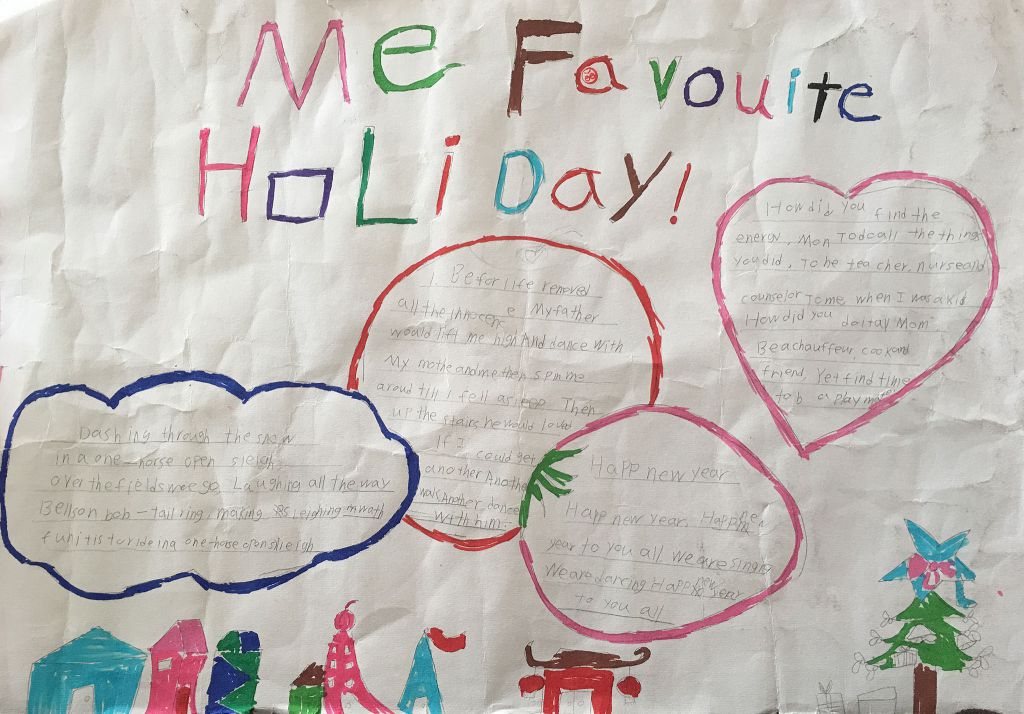 Me Favouite
HoLiDay!
How did you find the
energy, Mon Todoall the thing
you did, To be teacher, nurse and
counselor To me when I was a kid
How did you doitay Mom
Be a chauffeur, cook and
friend Yet find time
to b a playmate
1. Befor life removed
all the innocence My father
would lift me high And dance with
My mothe and me then spin me
aroud till I fell asleep Then
up the stairs he would loved
If I could get
another Anothe
walk Another dance
with him.
Dashing through the snow
in a one-horse open sleigh
Over the fields we go, Laughing all the way
Bells on bob-tail ring, making
one-horse
Happ new year
Happ new year. Happ new
year to you all We are singing
We are dancing Happ new year
to you all